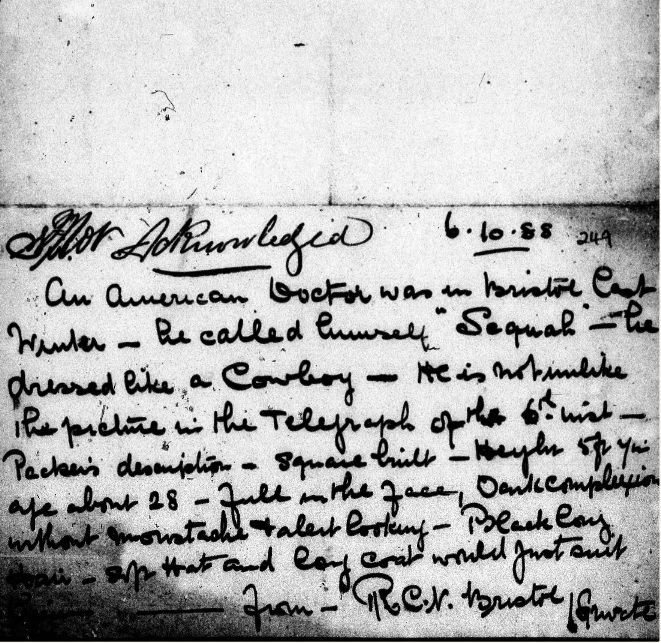 Acknowledged 6.10.88 249
An American Doctor was in Bristol last
Winter — he called himself "Sequah" — he
dressed like a Cowboy — He is not unlike
the picture in the Telegraph of the 6th inst —
Packer's description — Square built — Height 5ft 7in
age about 28 — full in the face, Dark complexion
without moustache & alert looking — Black long
hair — soft Hat and long coat would just suit
from — R.C.N. Bristol